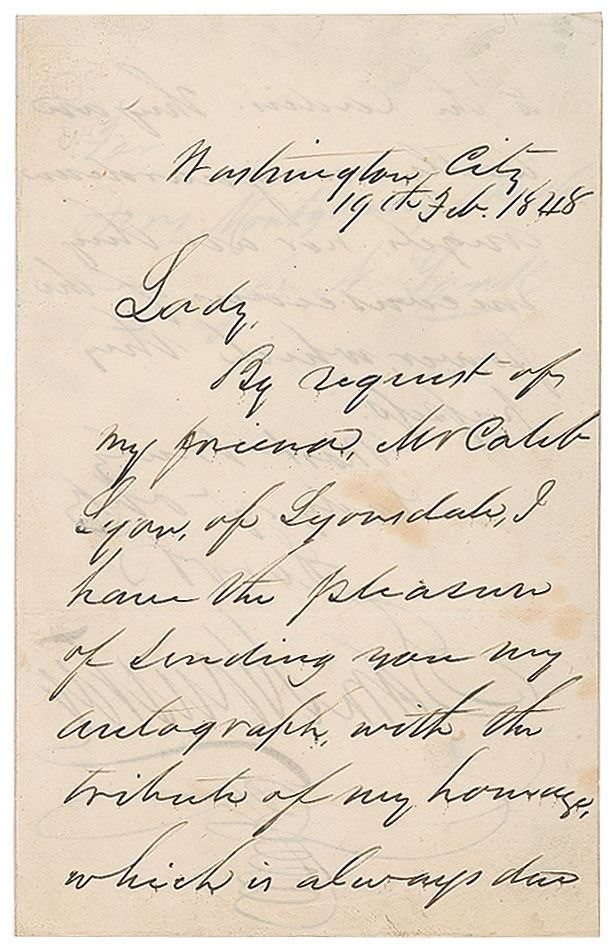 Washington City
19th Feb. 1848
Lady,
By request of
my friend, Mr Caleb
Lyon, of Lyonsdale, I
have the pleasure
of sending you my
autograph, with the
tribute of my homage,
which is always due